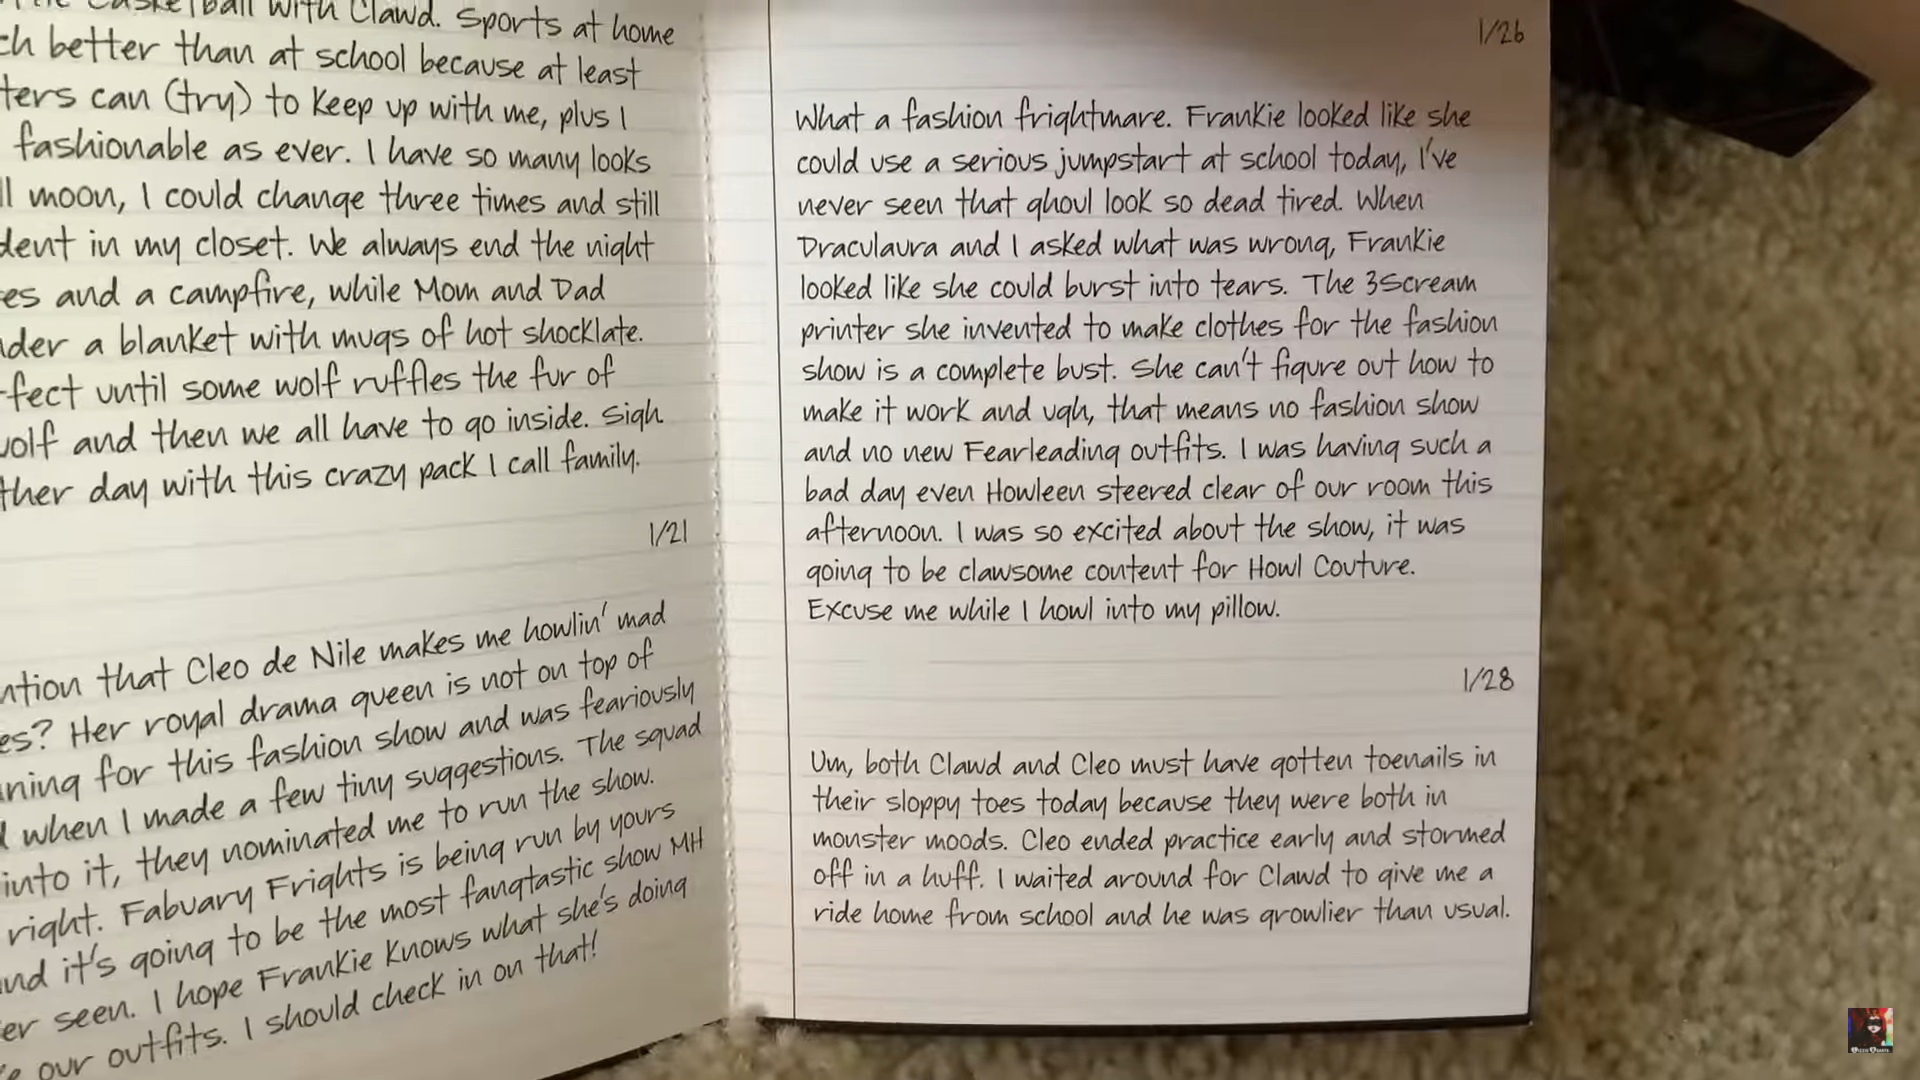 The Casketball with Clawd. Sports at home
better than at school because at least
can (try) to keep up with me, plus I
fashionable as ever. I have so many looks
moon, I could change three times and still
dent in my closet. We always end the night
and a campfire, while Mom and Dad
a blanket with mugs of hot shocklate.
until some wolf ruffles the fur of
and then we all have to go inside. Sigh
day with this crazy pack I call family.
1/21
that Cleo de Nile makes me howlin' mad
Her royal drama queen is not on top of
for this fashion show and was feariously
when I made a few tiny suggestions. The squad
into it, they nominated me to run the show.
right. Fabuary Frights is being run by yours
it's going to be the most fangtastic show MH
seen. I hope Frankie knows what she's doing
our outfits. I should check in on that!
1/26
What a fashion frightmare. Frankie looked like she
could use a serious jumpstart at school today, I've
never seen that ghoul look so dead tired. When
Draculaura and I asked what was wrong, Frankie
looked like she could burst into tears. The 3Scream
printer she invented to make clothes for the fashion
show is a complete bust. She can't figure out how to
make it work and ugh, that means no fashion show
and no new Fearleading outfits. I was having such a
bad day even Howleen steered clear of our room this
afternoon. I was so excited about the show, it was
going to be clawsome content for Howl Couture.
Excuse me while I howl into my pillow.
1/28
Um, both Clawd and Cleo must have gotten toenails in
their sloppy toes today because they were both in
monster moods. Cleo ended practice early and stormed
off in a huff. I waited around for Clawd to give me a
ride home from school and he was growlier than usual.